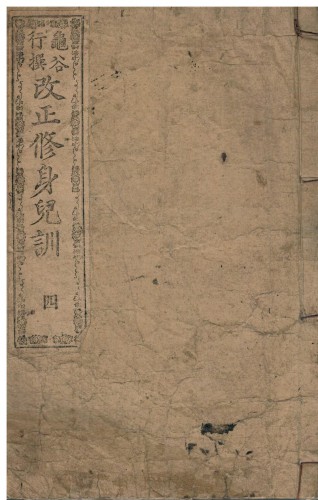 龜谷行撰
改正修身兒訓
四